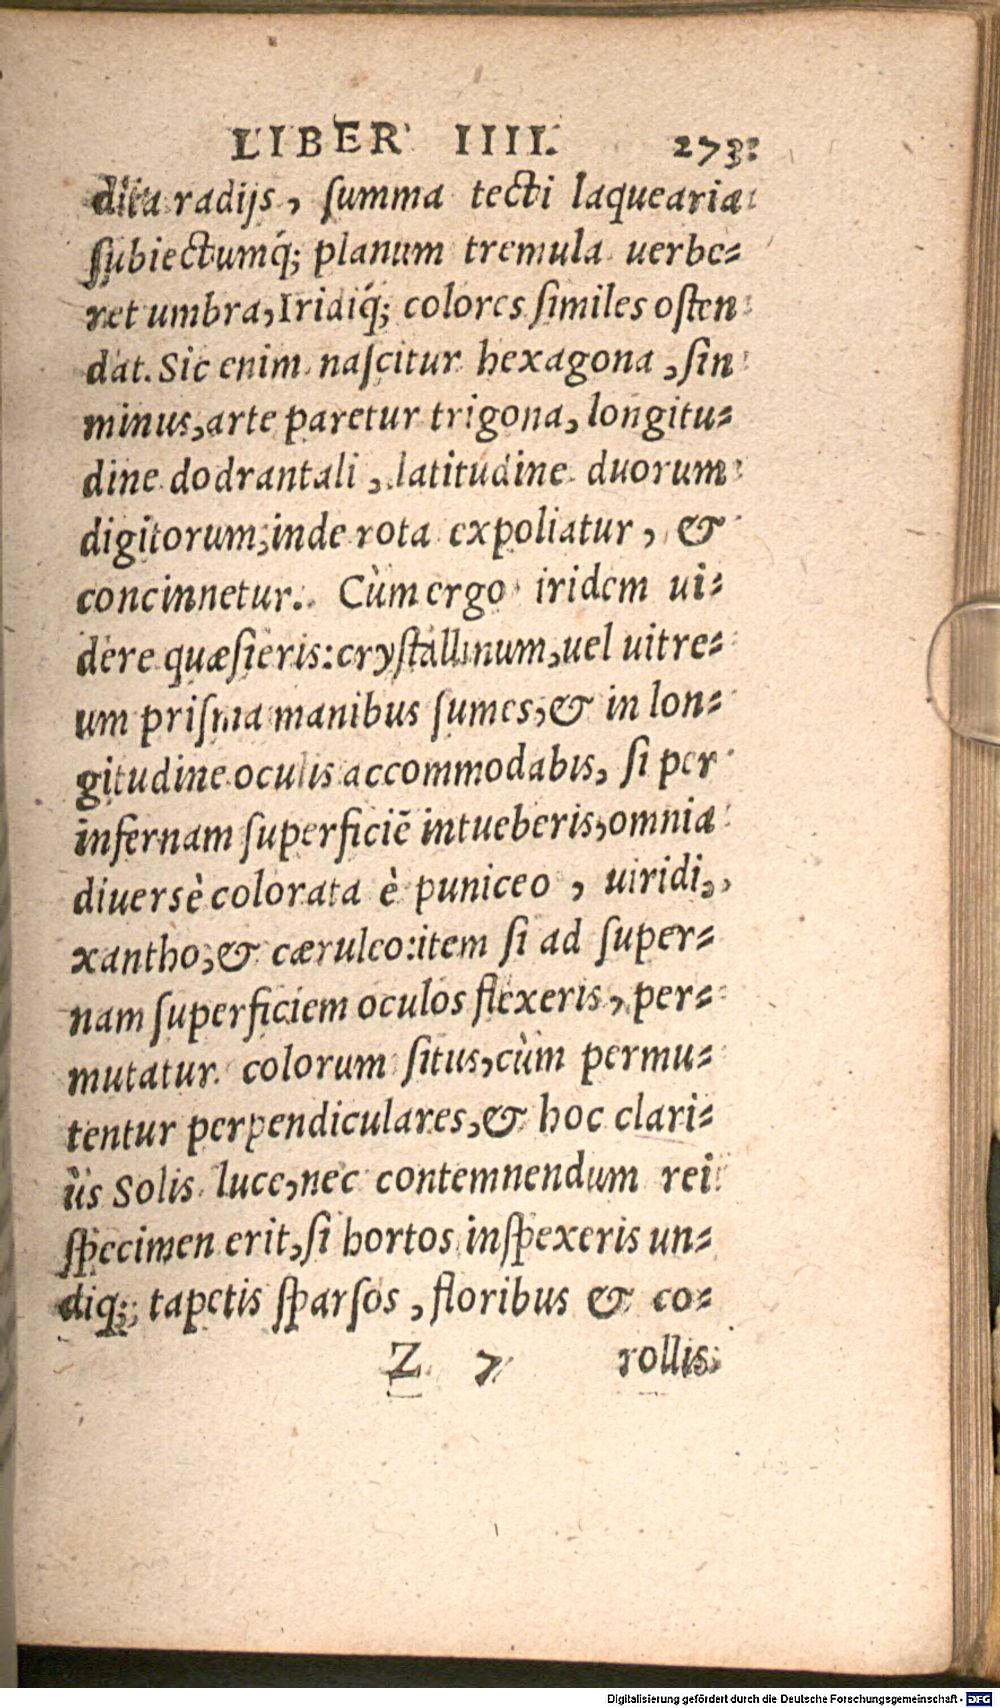 LIBER IIII. 273
dita radijs, summa tecti laquearia
subiectumq́; planum tremula uerbe-
ret umbra, Iridiq́; colores similes osten
dat. Sic enim nascitur hexagona, sin
minus, arte paretur trigona, longitu-
dine dodrantali, latitudine duorum
digitorum; inde rota expoliatur, &
concinnetur. Cùm ergo iridem ui-
dere quæsieris: crystallinum, uel uitre-
um prisma manibus sumes, & in lon-
gitudine oculis accommodabis, si per
infernam superficiẽ intueberis, omnia
diuersè colorata è puniceo, uiridi,
xantho, & cæruleo: item si ad super-
nam superficiem oculos flexeris, per-
mutatur colorum situs, cùm permu-
tentur perpendiculares, & hoc clari-
ùs Solis luce, nec contemnendum rei
specimen erit, si hortos inspexeris un-
diq; tapetis sparsos, floribus & co-
Z 7 rollis
Digitalisierung gefördert durch die Deutsche Forschungsgemeinschaft - DFG